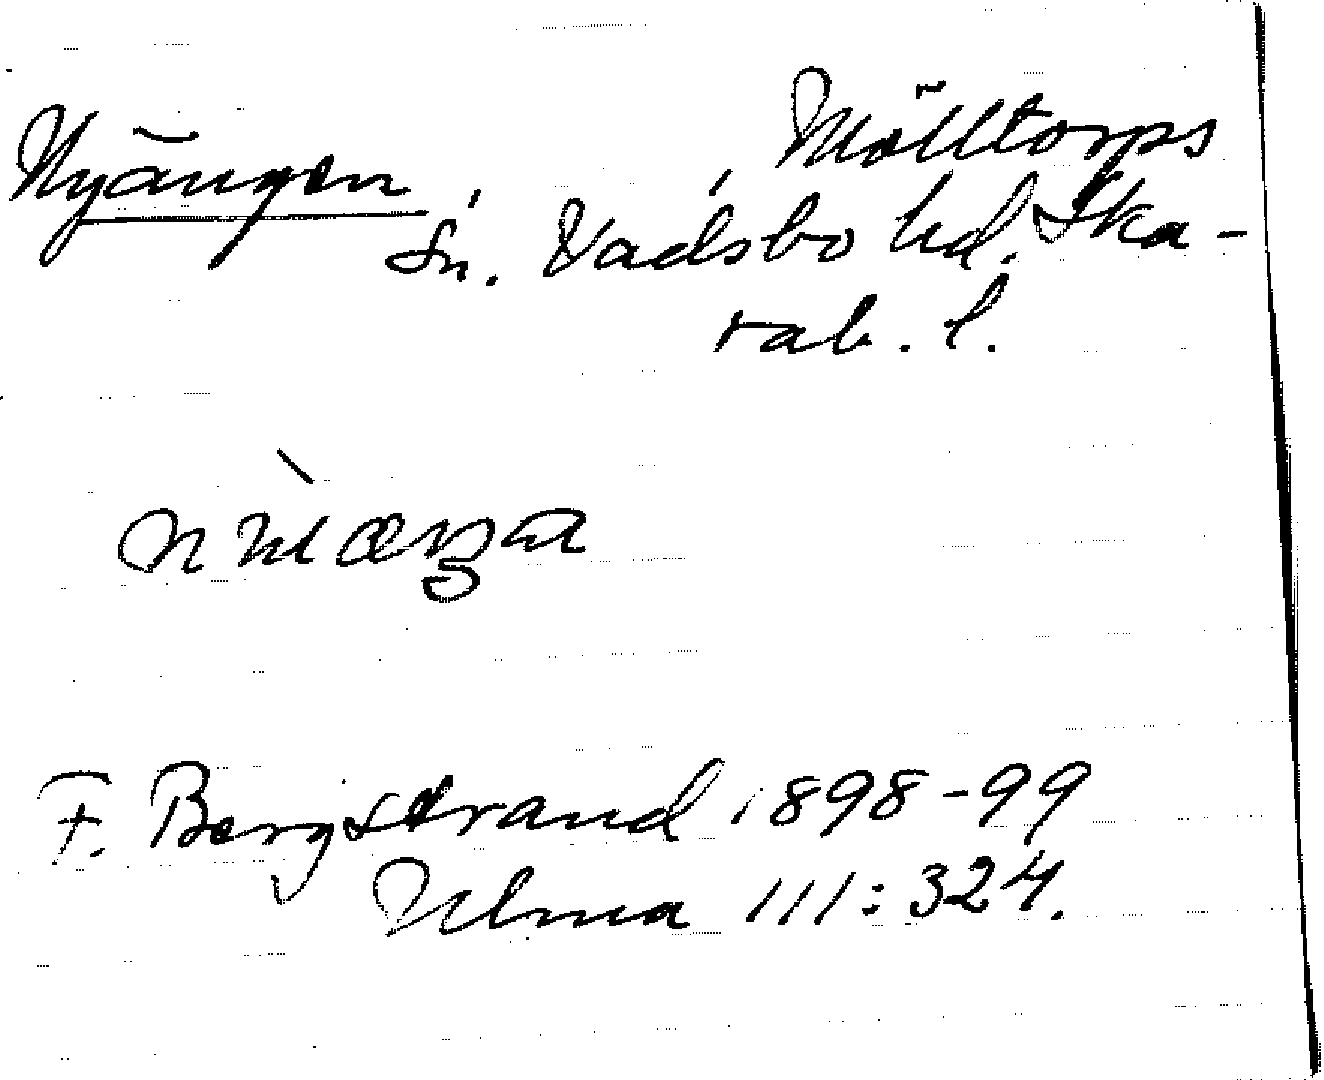 Nyängen, Mölltorps
Sn. Vadsbo hd. Ska-
rab. l.
F. Bergstrand 1898-99
Ulma 111:324.